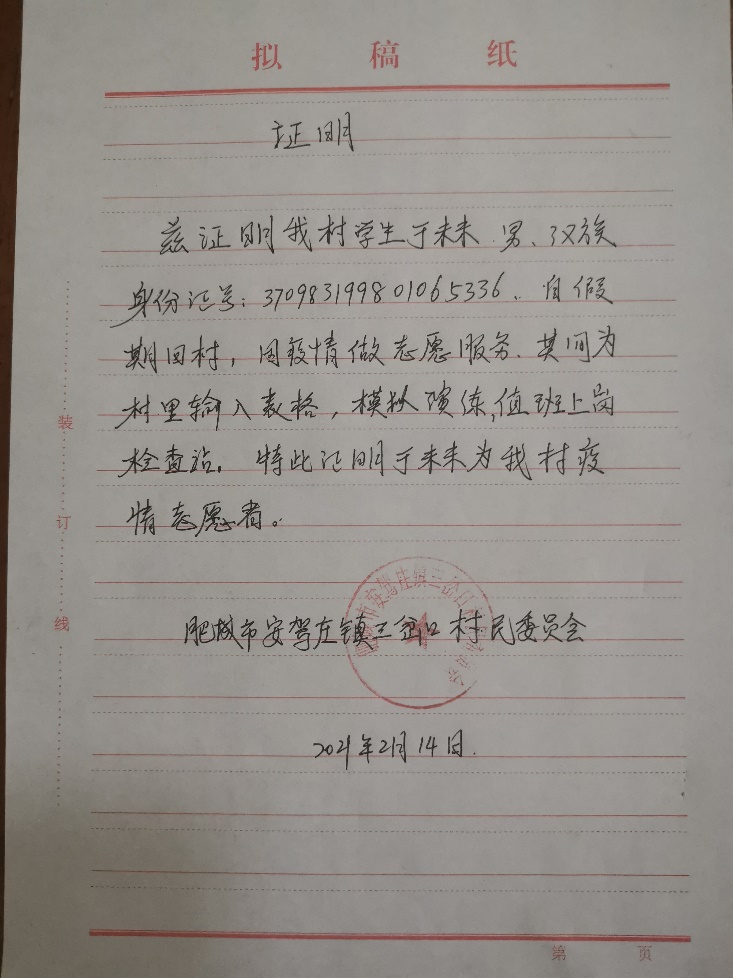 拟稿纸
证明
兹证明我村学生于未来.男、汉族
身份证号:370983199801065336、自假
期回村,因疫情做志愿服务.其间为
村里输入表格,模拟演练,值班上岗
检查站.特此证明于未来为我村疫
情志愿者。
肥城市安驾庄镇三岔口村民委员会
2021年2月14日.
装
订
线
第 页